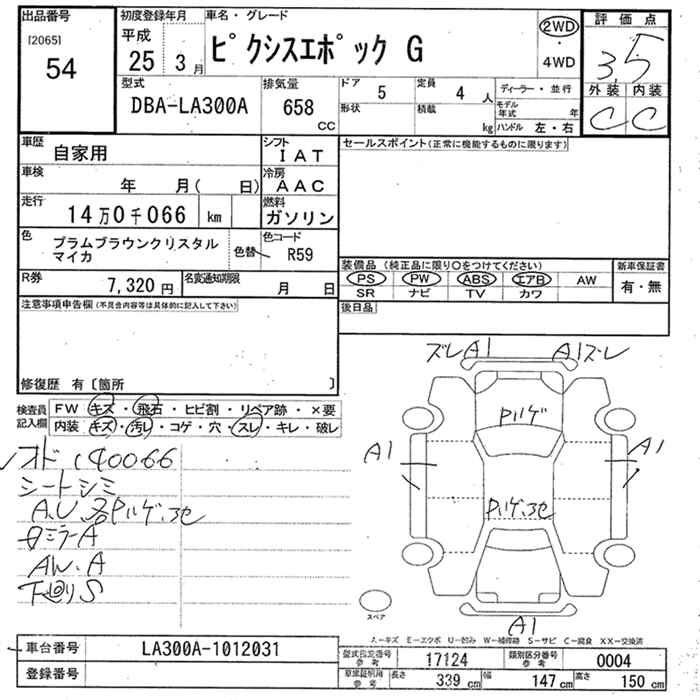 出品番号
[2065]
54
初度登録年月
平成
25年 3月
車名・グレード
ピクシスエポック G
2WD
・
4WD
評価点
3.5
外装 内装
C C
型式
DBA-LA300A
排気量
658
CC
ドア 5
形状
定員 4 人
積載 kg
ディーラー・並行
モデル年式 年
ハンドル 左・右
車歴
自家用
シフト
IAT
セールスポイント(正常に機能するものに限ります)
車検
年 月( 日)
冷房
AAC
走行
14万0千066 km
燃料
ガソリン
色
プラムブラウンクリスタル
マイカ
色替
色コード
R59
装備品 (純正品に限り○をつけてください)
PS PW ABS エアB AW
SR ナビ TV カワ
新車保証書
有・無
R券
7,320 円
名変通知期限
月 日
後日品
注意事項申告欄(不具合内容等は具体的に記入して下さい)
修復歴 有〔箇所 〕
検査員
記入欄
FW キズ・飛石・ヒビ割・リペア跡・×要
内装 キズ・汚レ・コゲ・穴・スレ・キレ・破レ
オド 140066
シートシミ
A.U 各Pハゲ、3セ
ミラーA
AW.A
下廻りS
ズレ A1
A1ズレ
Pハゲ
A1
A1
Pハゲ、3セ
A1
スペア
A-キズ E-エクボ U-凹み W-補修跡 S-サビ C-腐食 XX-交換済
車台番号
LA300A-1012031
登録番号
型式指定番号
参考
17124
類別区分番号
参考
0004
車庫証明用
参考
長さ 339 cm
幅 147 cm
高さ 150 cm